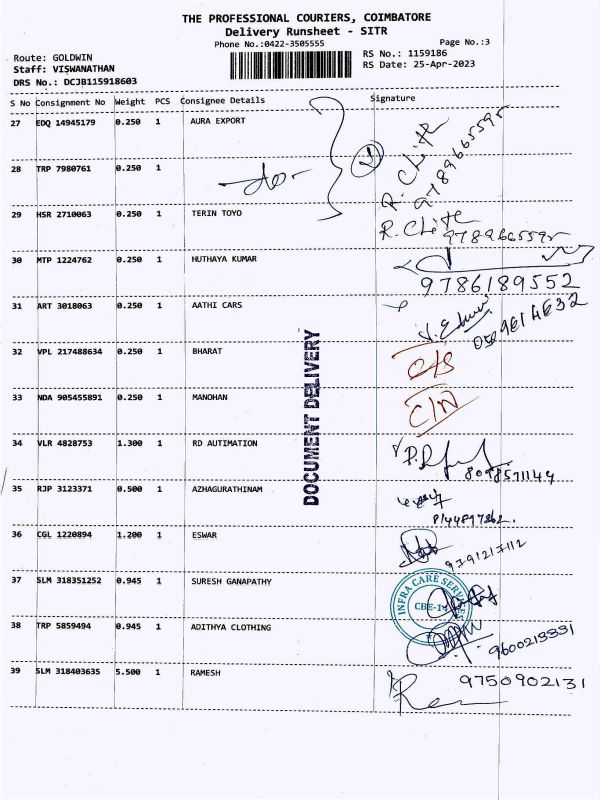 THE PROFESSIONAL COURIERS, COIMBATORE
Delivery Runsheet - SITR
Phone No.:0422-3505555
Page No.:3
Route: GOLDWIN
RS No.: 1159186
Staff: VISWANATHAN
RS Date: 25-Apr-2023
DRS No.: DCJB115918603
S No Consignment No Weight PCS Consignee Details Signature
27 EDQ 14945179 0.250 1 AURA EXPORT
28 TRP 7980761 0.250 1
29 HSR 2710063 0.250 1 TERIN TOYO R. Chite
30 MTP 1224762 0.250 1 HUTHAYA KUMAR
9786189552
31 ART 3018063 0.250 1 AATHI CARS
32 VPL 217488634 0.250 1 BHARAT
33 NDA 905455891 0.250 1 MANOHAN
34 VLR 4828753 1.300 1 RD AUTIMATION
8098571144
35 RJP 3123371 0.500 1 AZHAGURATHINAM
36 CGL 1220894 1.200 1 ESWAR
9791217112
37 SLM 318351252 0.945 1 SURESH GANAPATHY
INFRA CARE SERVICES
CBE-14
38 TRP 5859494 0.945 1 ADITHYA CLOTHING
9600213331
39 SLM 318403635 5.500 1 RAMESH 9750902131
DOCUMENT DELIVERY